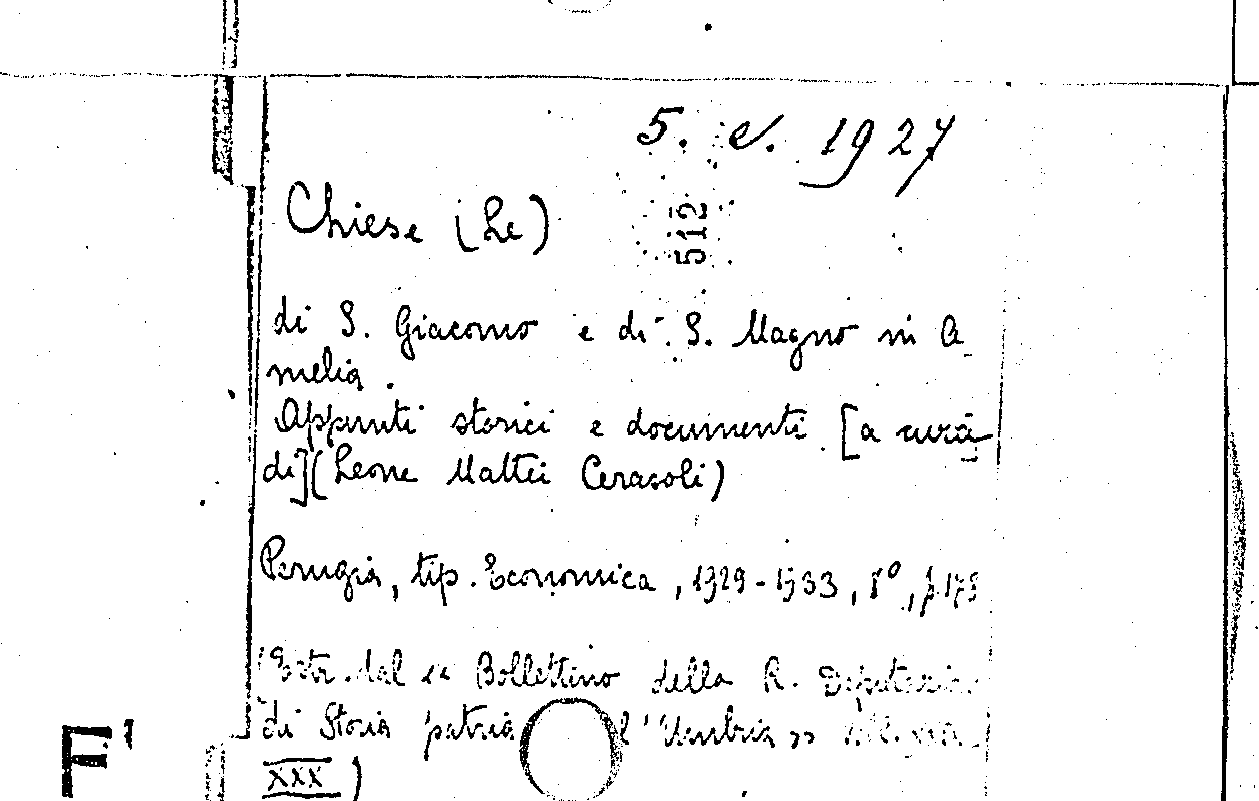 5. e. 1927
Chiese (Le)
512
di S. Giacomo e di S. Magno in A
melia.
Appunti storici e documenti [a cura
di] (Leone Mattei Cerasoli)
Perugia, tip. Economica, 1929-1933, 8°, p.
(Estr. dal « Bollettino della R. Deputazione
di Storia patria l'Umbria »
XXX)
F'